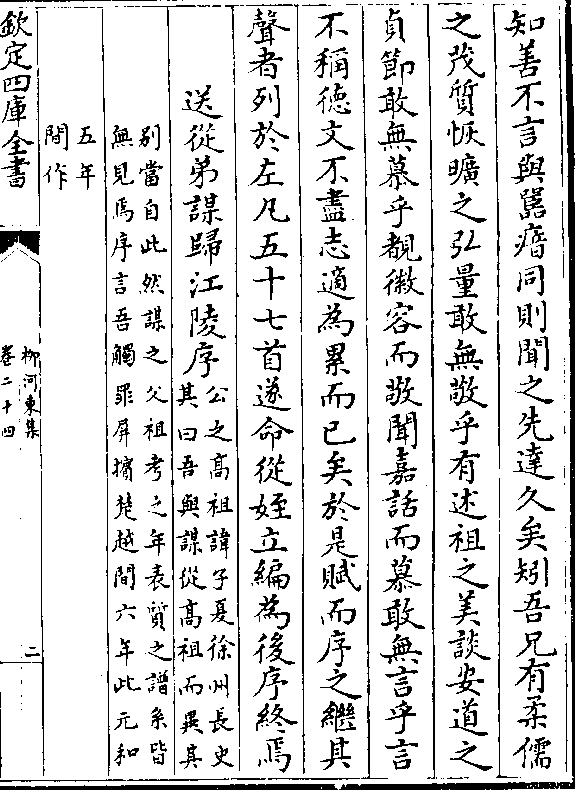 知善不言與嚚瘖同則聞之先達久矣矧吾兄有柔儒
之茂質恢曠之弘量敢無敬乎有述祖之美談安道之
貞節敢無慕乎覩徽容而敬聞嘉話而慕敢無言乎言
不稱德文不盡志適為累而已矣於是賦而序之繼其
聲者列於左凡五十七首遂命從姪立編為後序終焉
送從弟謀歸江陵序
公之高祖諱子夏徐州長史
其曰吾與謀從高祖而異其
別當自此然謀之父祖考之年表質之譜系皆
無見焉序言吾觸罪屏擯楚越間六年此元和
五年
間作
欽定四庫全書
柳河東集
卷二十四
二